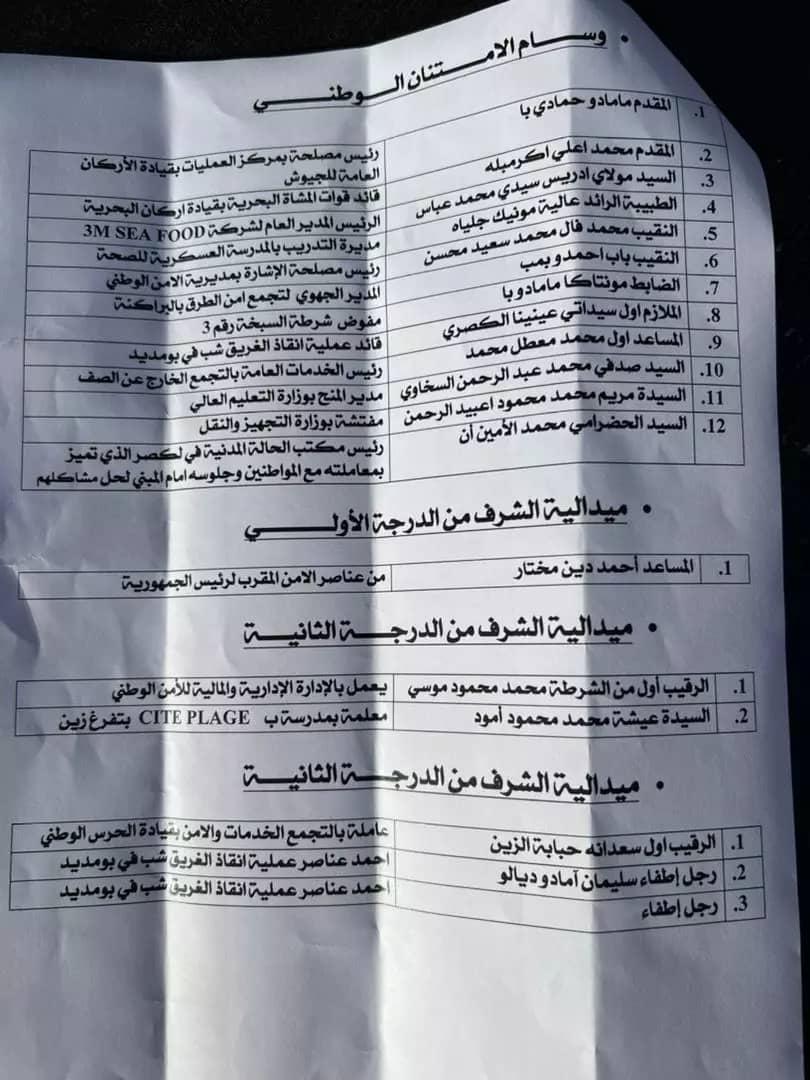 • وسام الامتنان الوطني
1. المقدم مامادو حمادي با
رئيس مصلحة بمركز العمليات بقيادة الأركان
العامة للجيوش
2. المقدم محمد اعلي اكرمبله
قائد قوات المشاة البحرية بقيادة اركان البحرية
3. السيد مولاي ادريس سيدي محمد عباس
الرئيس المدير العام لشركة 3M SEA FOOD
4. الطبيبة الرائد عالية مونيك جلياه
مديرة التدريب بالمدرسة العسكرية للصحة
5. النقيب محمد فال محمد سعيد محسن
رئيس مصلحة الإشارة بمديرية الامن الوطني
6. النقيب باب احمدو بمب
المدير الجهوي لتجمع امن الطرق بالبراكنة
7. الضابط مونتاكا مامادو با
مفوض شرطة السبخة رقم 3
8. الملازم اول سيداتي عينينا الكصري
قائد عملية انقاذ الغريق شب في بومديد
9. المساعد اول محمد معطل محمد
رئيس الخدمات العامة بالتجمع الخارج عن الصف
10. السيد صدفي محمد عبد الرحمن السخاوي
مدير المنح بوزارة التعليم العالي
11. السيدة مريم محمد محمود اعبيد الرحمن
مفتشة بوزارة التجهيز والنقل
12. السيد الحضرامي محمد الأمين أن
رئيس مكتب الحالة المدنية في لكصر الذي تميز
بمعاملته مع المواطنين وجلوسه امام المبني لحل مشاكلهم
• ميدالية الشرف من الدرجة الأولي
1. المساعد أحمد دين مختار
من عناصر الامن المقرب لرئيس الجمهورية
• ميدالية الشرف من الدرجة الثانية
1. الرقيب أول من الشرطة محمد محمود موسي
يعمل بالإدارة الإدارية والمالية للأمن الوطني
2. السيدة عيشة محمد محمود أمود
معلمة بمدرسة ب CITE PLAGE بتفرغ زين
• ميدالية الشرف من الدرجة الثانية
1. الرقيب اول سعدانه حبابة الزين
عاملة بالتجمع الخدمات والامن بقيادة الحرس الوطني
2. رجل إطفاء سليمان آمادو ديالو
احمد عناصر عملية انقاذ الغريق شب في بومديد
3. رجل إطفاء
احمد عناصر عملية انقاذ الغريق شب في بومديد